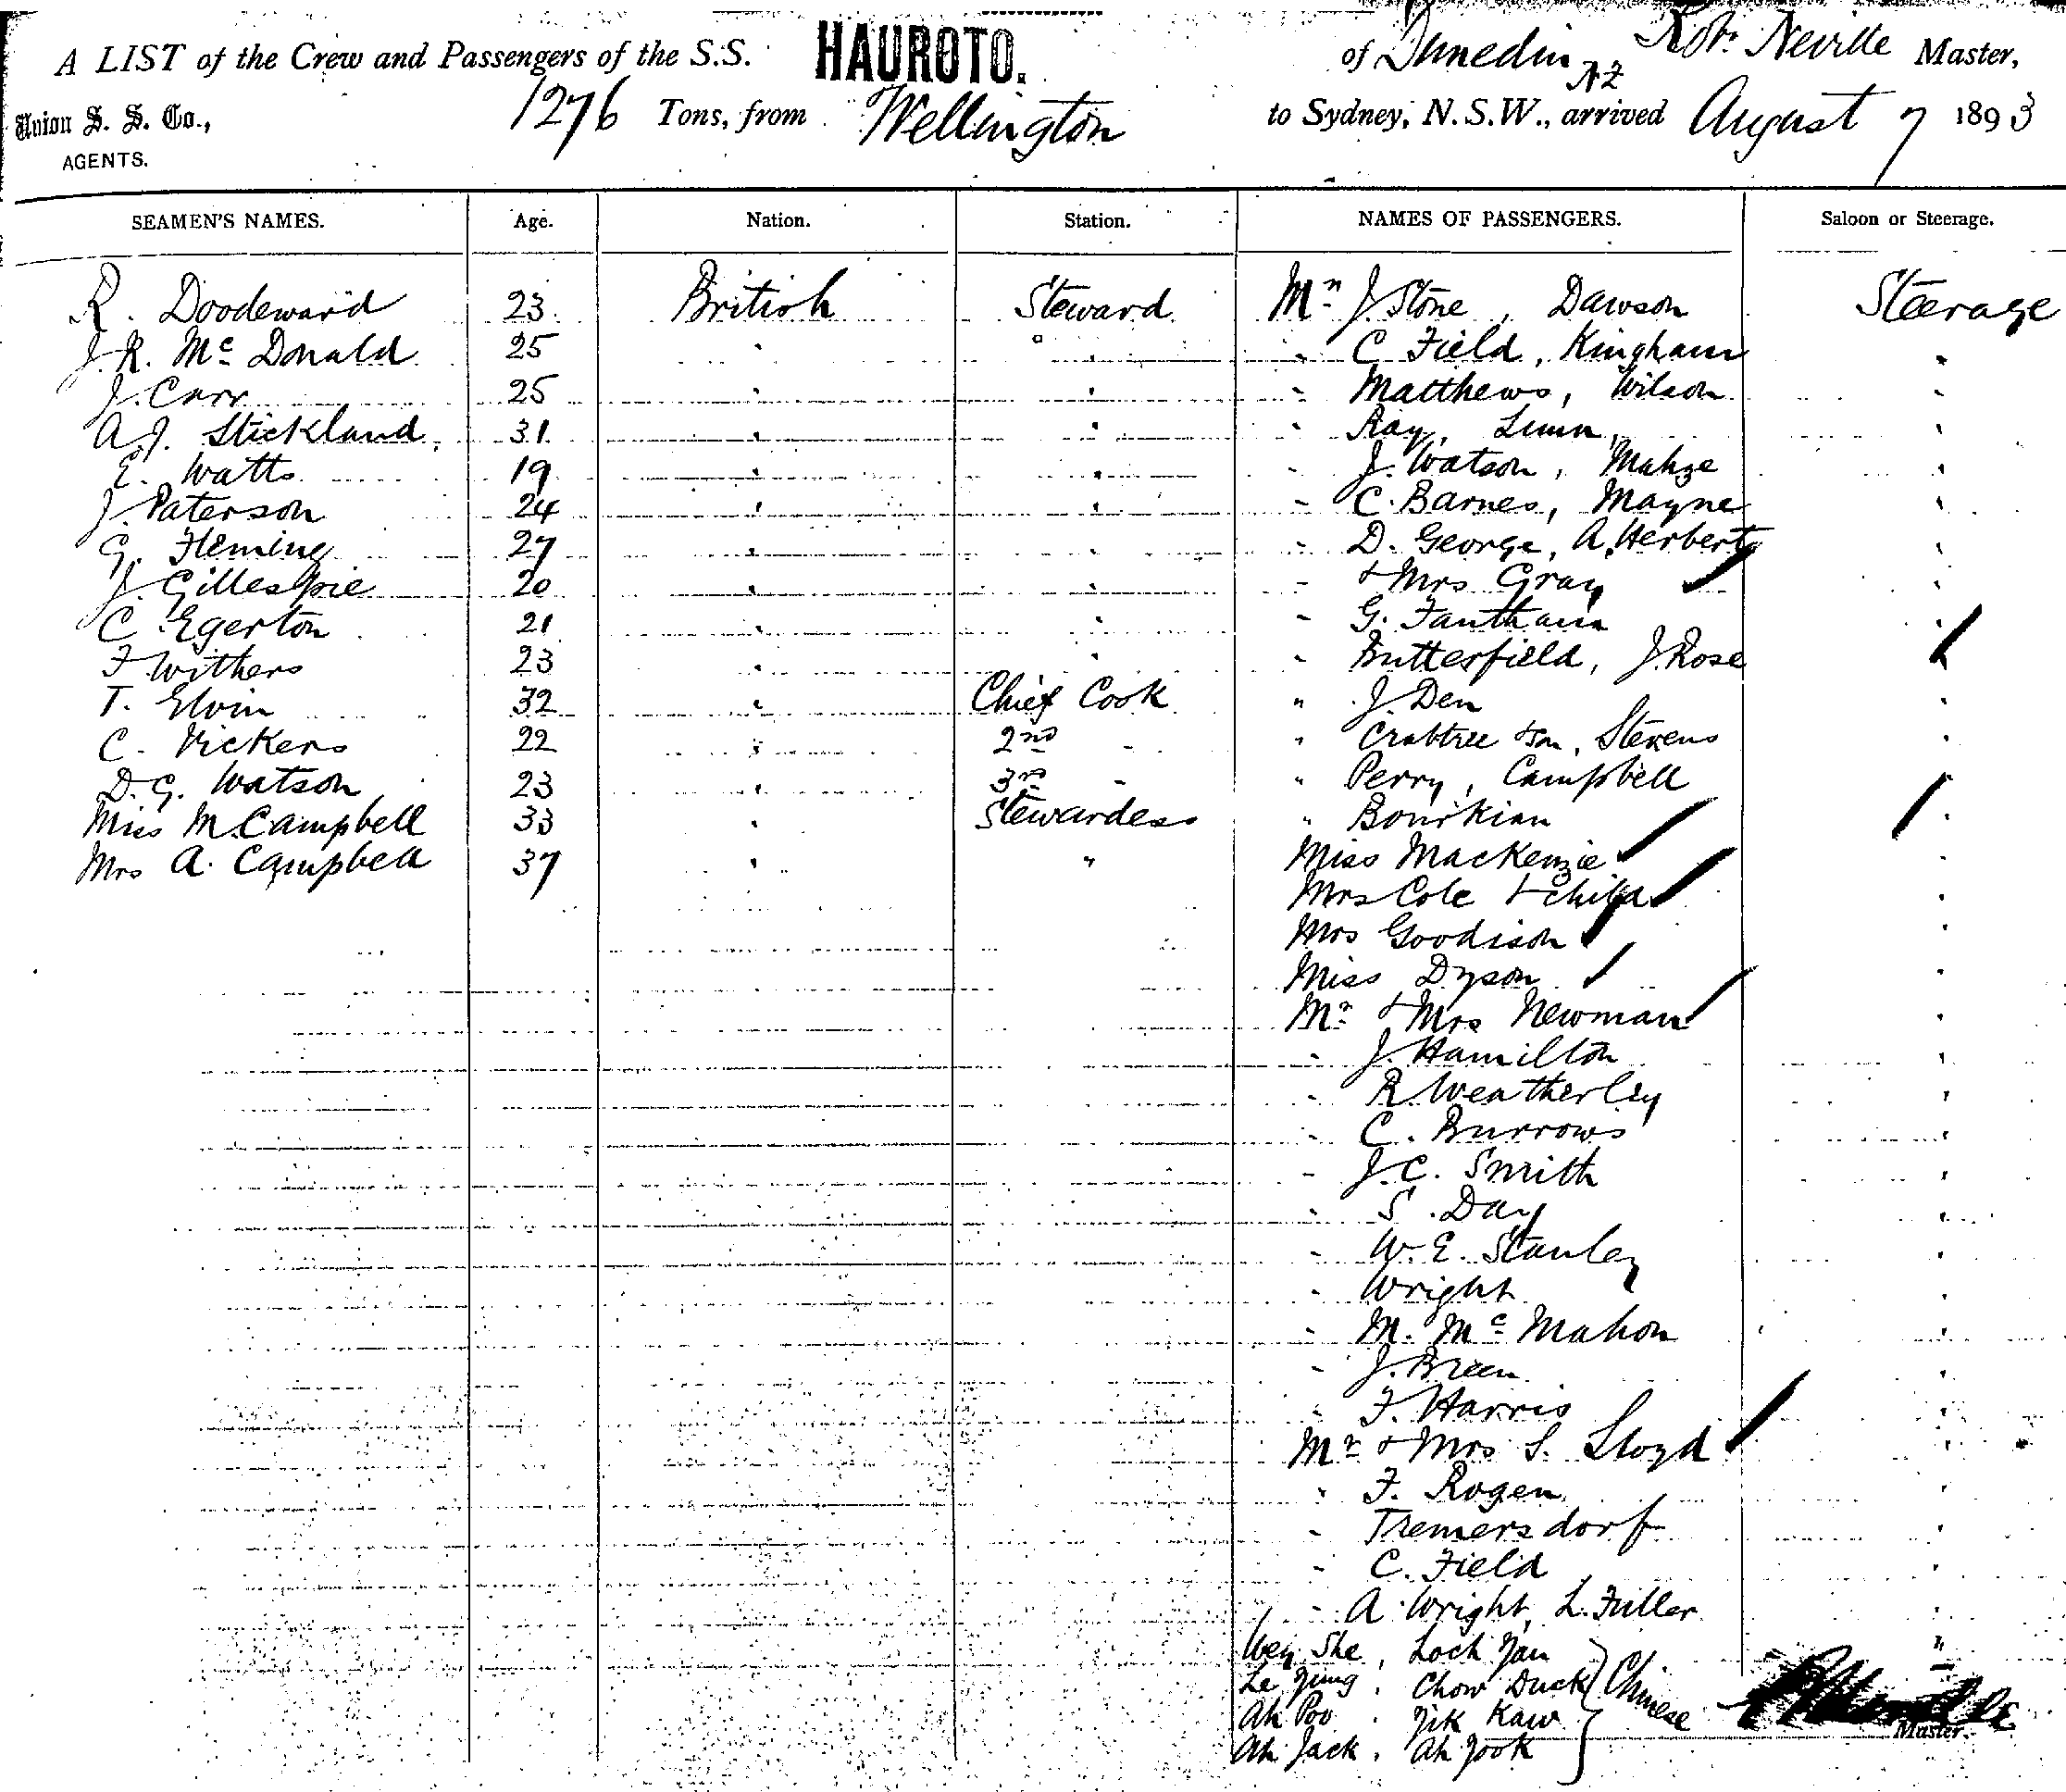 A LIST of the Crew and Passengers of the S.S. HAUROTO. of Dunedin NZ Robt Neville Master,
Union S. S. Co., AGENTS. 1276 Tons, from Wellington to Sydney, N.S.W., arrived August 7 1893
SEAMEN'S NAMES. Age. Nation. Station. NAMES OF PASSENGERS. Saloon or Steerage.
R. Doodeward 23 British Steward Mr J. Stone, Dawson Steerage
J. R. Mc Donald 25 " " " C Field, Kingham "
J. Carr 25 " " " Matthews, Wilson "
A. J. Stickland 31 " " " Ray, Lunn "
E. Watts 19 " " " J. Watson, "
J. Paterson 24 " " " C. Barnes, Mayne "
G. Fleming 27 " " " D. George, A. Herbert "
J. Gillespie 20 " " " & Mrs Gray "
C Egerton 21 " " " G. Fantham "
F Withers 23 " " " Butterfield, J. Rose
T. Elvin 32 " Chief Cook " J. Den "
C. Vickers 22 " 2nd " " Crabtree & Son, Stevens "
D. G. Watson 23 " 3rd " " Perry, Campbell "
Miss M. Campbell 33 " Stewardess " "
Mrs A. Campbell 37 " " Miss MacKenzie "
Mrs Cole & child "
Mrs Goodison "
Miss Dyson "
Mr & Mrs Newman "
" J. Hamilton "
" R. Weatherley "
" C. Burrows "
" J. C. Smith "
" S. Day "
" W. E. Stanley "
" Wright "
" M. Mc Mahon "
" J. Breen "
" F. Harris "
Mr & Mrs S. Lloyd "
" F. Rogen "
" Tremersdorf "
" C. Field "
" A Wright, L. Fuller "
Wey She, Lock Yan "
Le Yung, Chow Duck Chinese
Ah Poo, Yik Kaw
Master.
Ah Jack, Ah Yook